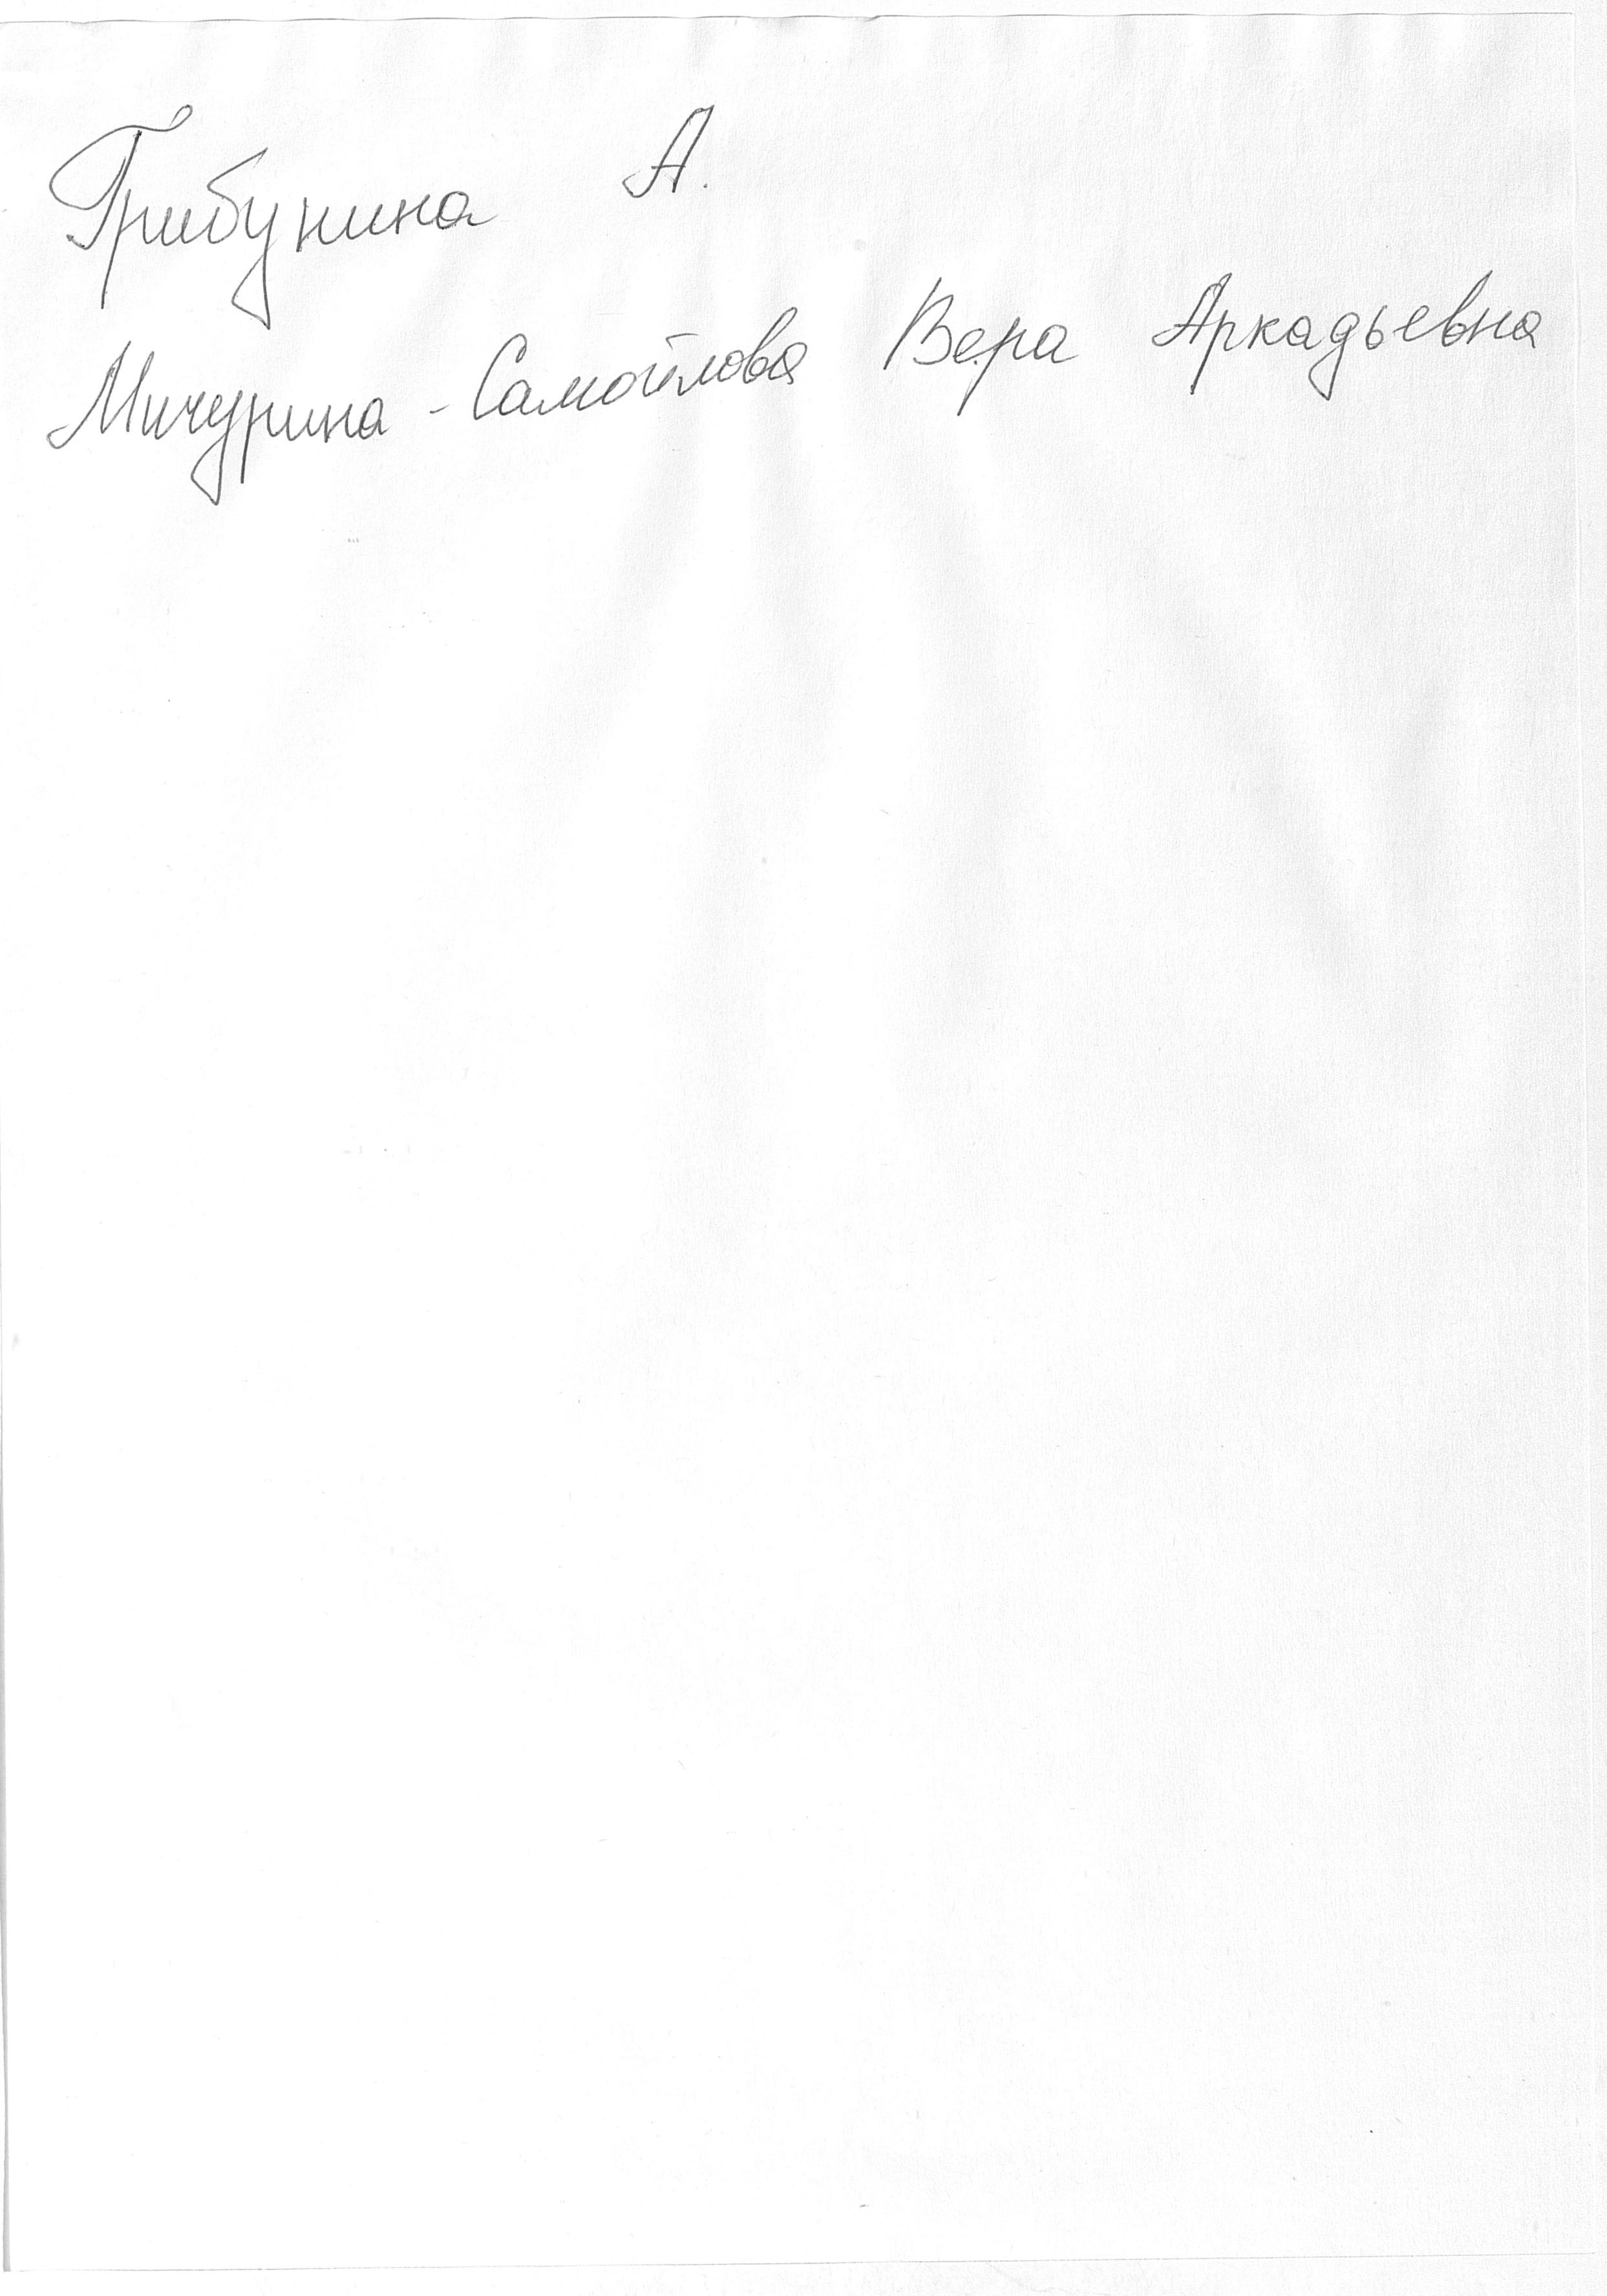 Грибунина А.
Мичурина - Самойлова Вера Аркадьевна